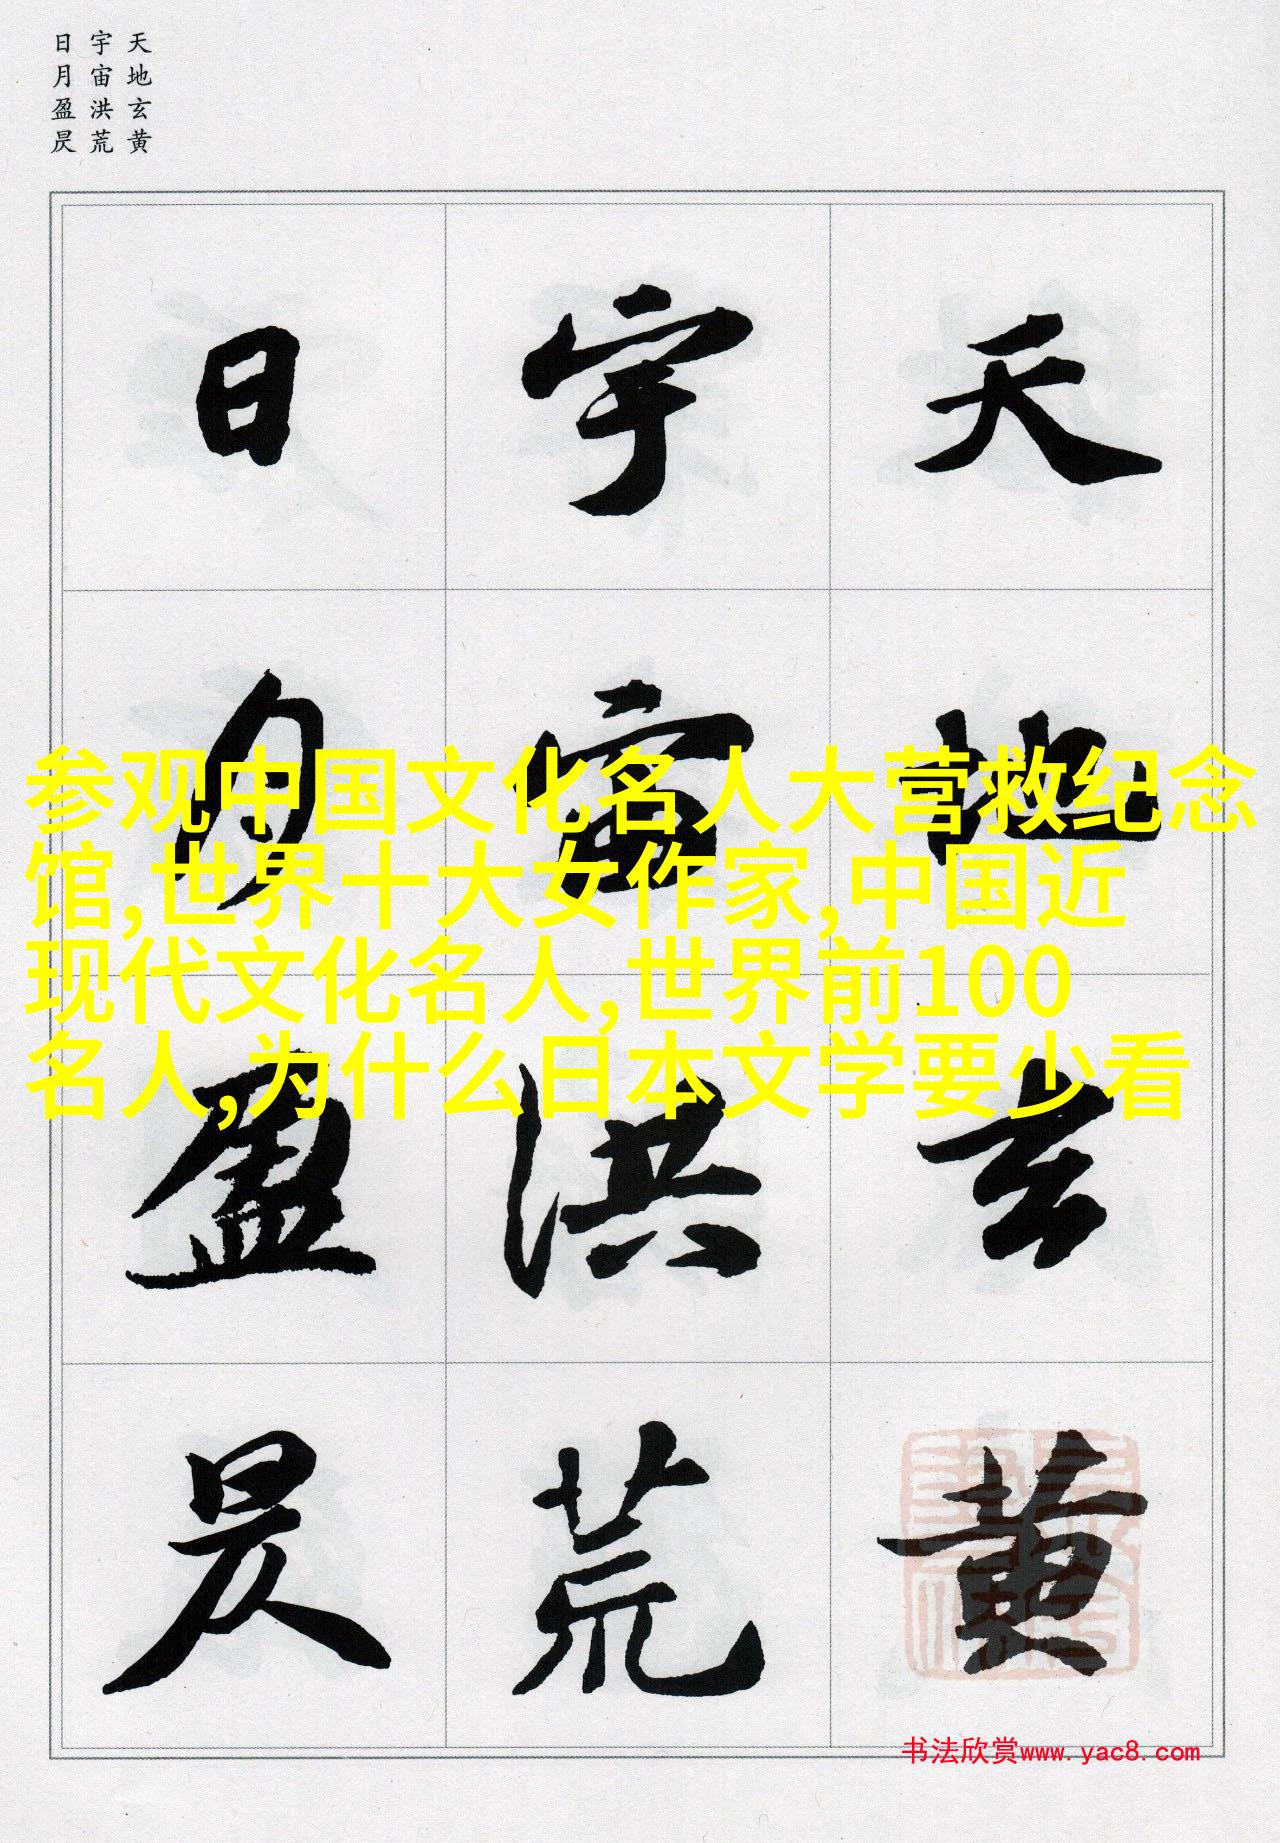 天地玄黄
宇宙洪荒
日月盈昃
天地玄黄
宇宙洪荒
日月盈昃
参观中国文化名人大营救纪念
馆,世界十大女作家,中国近
现代文化名人,世界前100
名人,为什么日本文学要少看
书法欣赏www.yac8.com